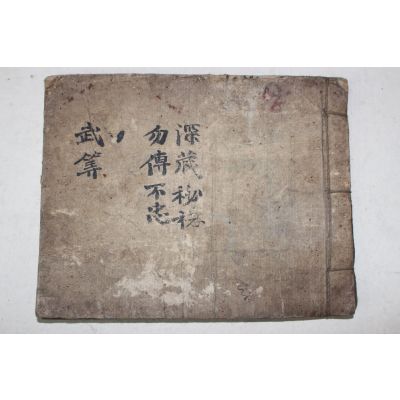 深藏秘
勿傳不忠
武筭